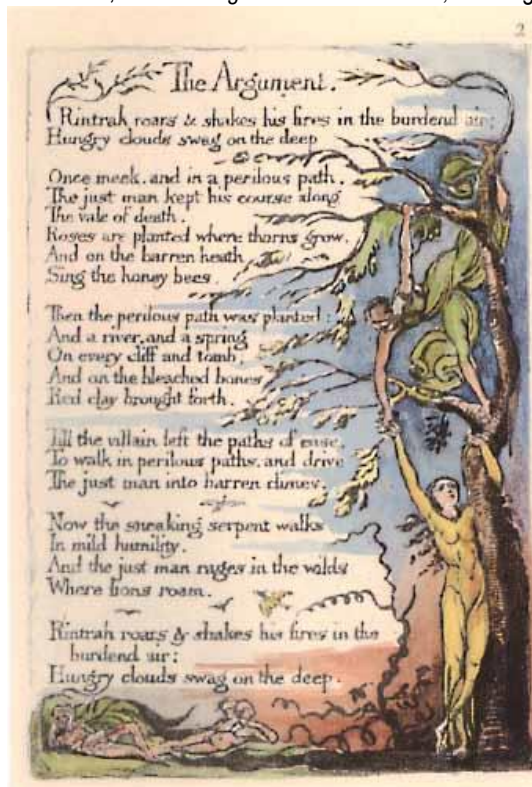 2
The Argument.
Rintrah roars & shakes his fires in the burdend air;
Hungry clouds swag on the deep
Once meek, and in a perilous path,
The just man kept his course along
The vale of death.
Roses are planted where thorns grow,
And on the barren heath
Sing the honey bees.
Then the perilous path was planted:
And a river, and a spring
On every cliff and tomb;
And on the bleached bones
Red clay brought forth.
Till the villain left the paths of ease,
To walk in perilous paths, and drive
The just man into barren climes.
Now the sneaking serpent walks
In mild humility.
And the just man rages in the wilds
Where lions roam.
Rintrah roars & shakes his fires in the
burdend air;
Hungry clouds swag on the deep.